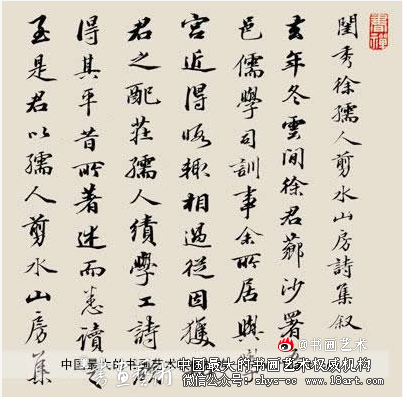 書禪
閨秀徐孺人剪水山房詩集叙
亥年冬雲間徐君薌沙署
邑儒學司訓事余所居與
宮近得暇輒相過從因獲
君之配莊孺人績學工詩
得其平昔所著述而悉讀
至是君以孺人剪水山房集
@书画艺术
中国最大的书画艺术中国最大的书画艺术权威机构
微信公众号:shys-cc www.18art.com